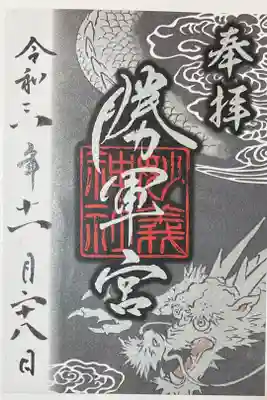 奉拝
勝軍宮
妙義
神社
令和六年十一月二十八日